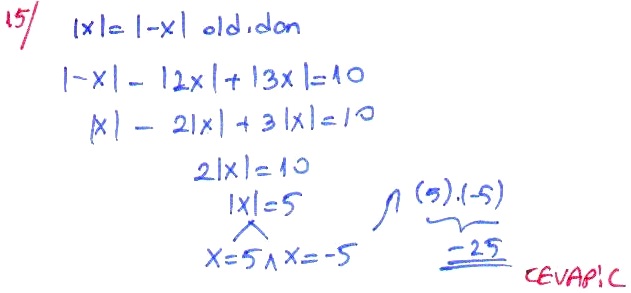 15/ |x|=|-x| old.dan
|-x| - |2x| + |3x|=10
|x| - 2|x| + 3|x|=10
2|x|=10
|x|=5
x=5 ∧ x=-5
(5).(-5)
-25
CEVAP:C